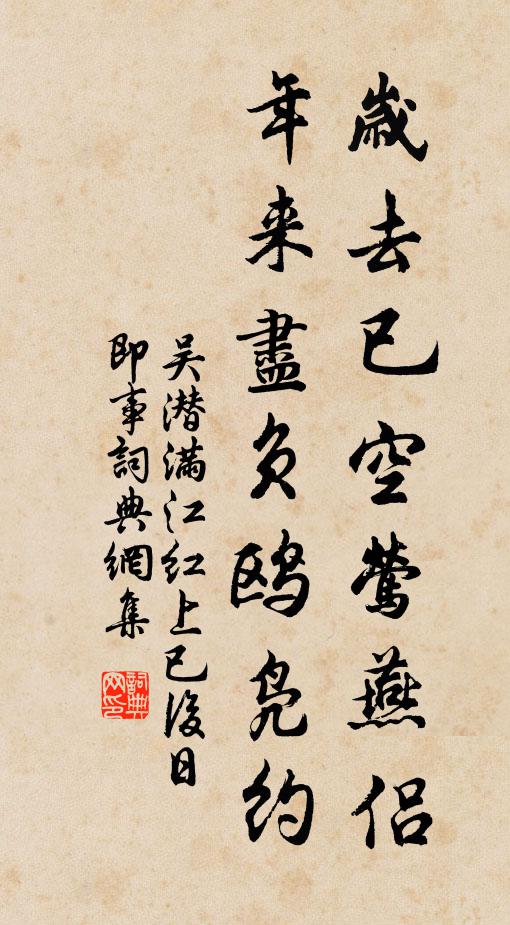 歲去已空鶯燕侶
年来盡負鷗鳧約
吴潜满江红上巳後日
即事詞典網集
詞典
网印